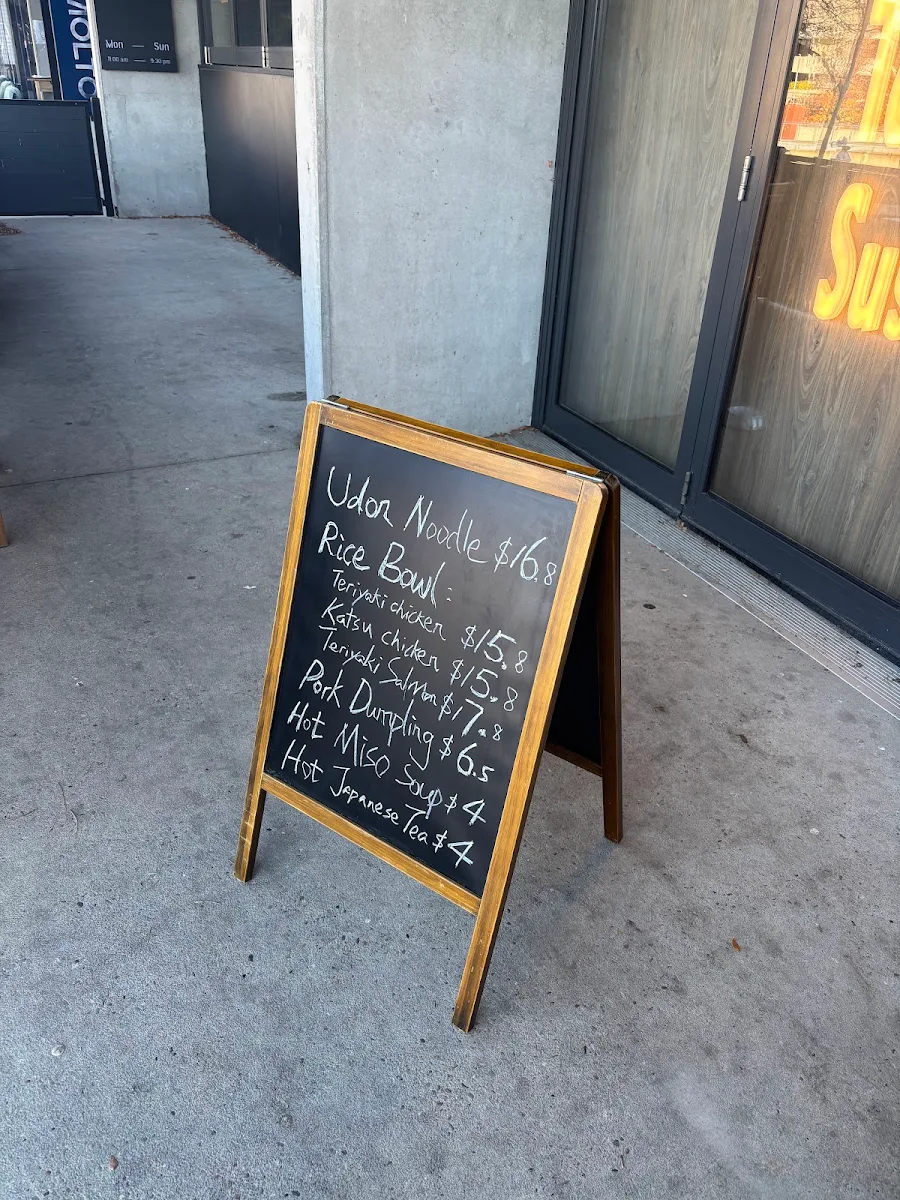 MOLTO
Mon — Sun
11:00 am — 9:30 pm
Sus
Udon Noodle $16.8
Rice Bowl:
Teriyaki chicken $15.8
Katsu chicken $15.8
Teriyaki Salmon $17.8
Pork Dumpling $6.5
Hot Miso Soup $4
Hot Japanese Tea $4